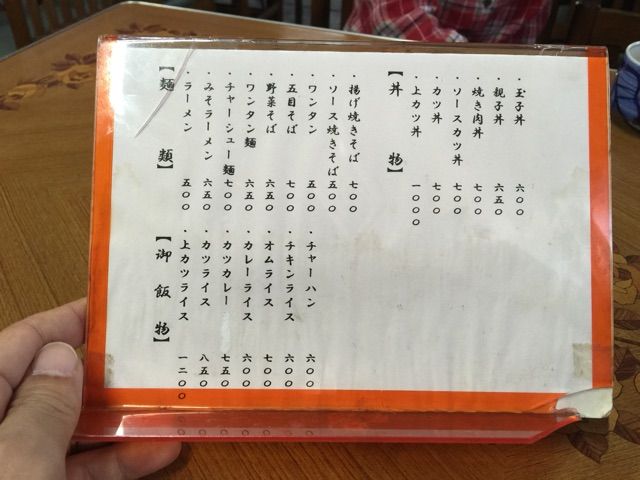 【麺類】
・ラーメン 五〇〇
・みそラーメン 六五〇
・チャーシュー麺 七〇〇
・ワンタン麺 六五〇
・野菜そば 六五〇
・五目そば 七〇〇
・ワンタン 五〇〇
・ソース焼きそば 五〇〇
・揚げ焼きそば 七〇〇
【丼物】
・上カツ丼 一〇〇〇
・カツ丼 七〇〇
・ソースカツ丼 七〇〇
・焼き肉丼 七〇〇
・親子丼 六五〇
・玉子丼 六〇〇
【御飯物】
・上カツライス 一二〇〇
・カツライス 八五〇
・カツカレー 七五〇
・カレーライス 六〇〇
・オムライス 七〇〇
・チキンライス 六〇〇
・チャーハン 六〇〇